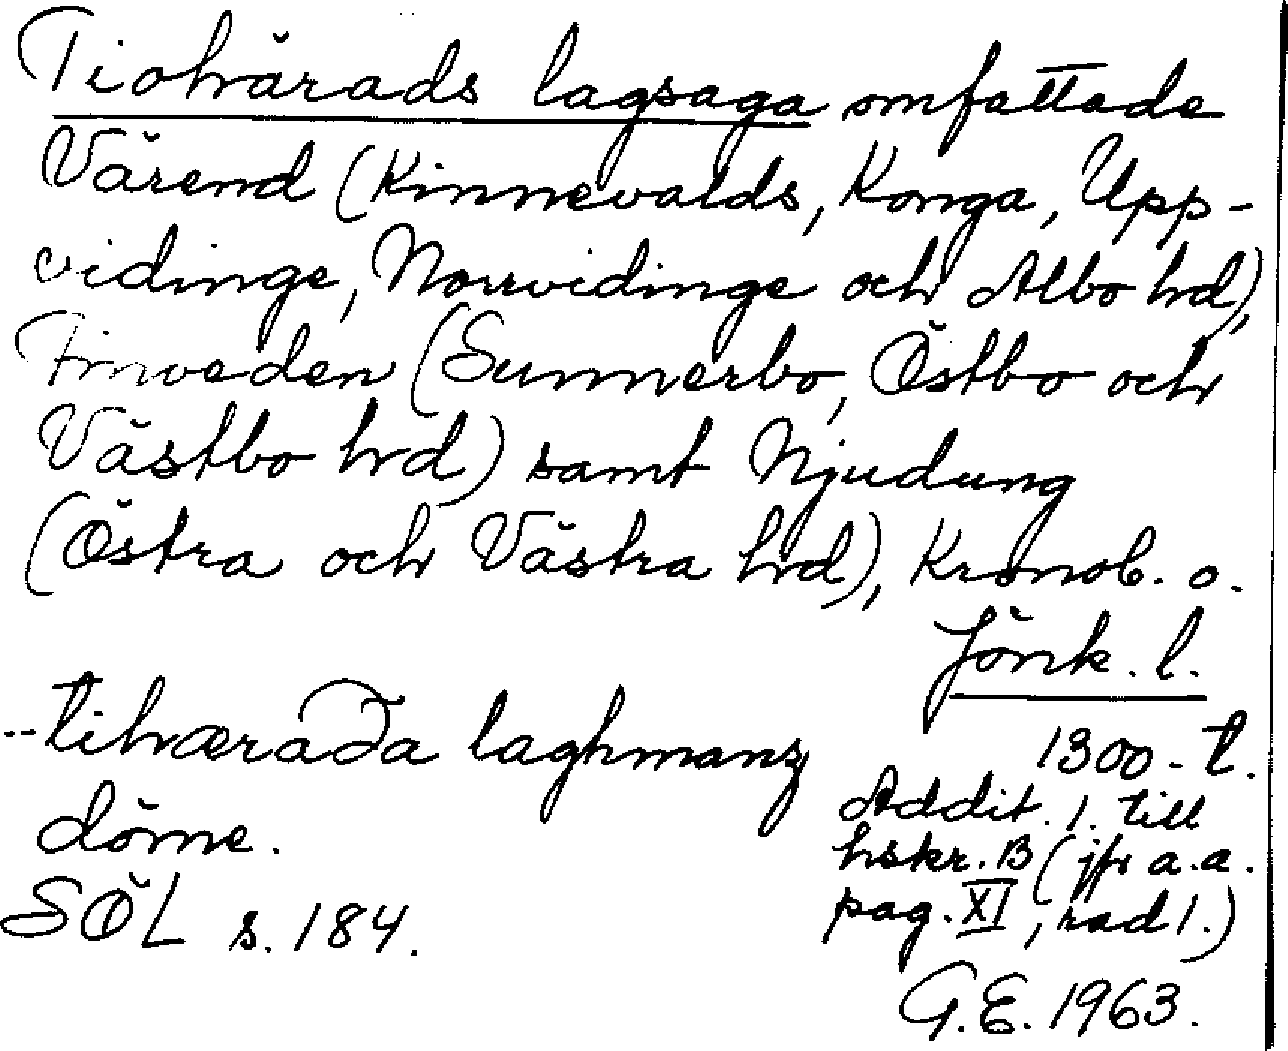 Tiohärads lagsaga omfattade
Värend (Kinnevalds, Konga, Upp-
vidinge, Norrvidinge och Albo hrd),
Finveden (Sunnerbo, Östbo och
Västbo hrd) samt Njudung
(Östra och Västra hrd), Kronob. o.
Jönk. l.
--tihæraða laghmanz
döme.
SÖL s. 184.
1300-t.
Addit. 1. till
hskr. B (jfr a.a.
pag. XI, rad 1.)
G.E. 1963.